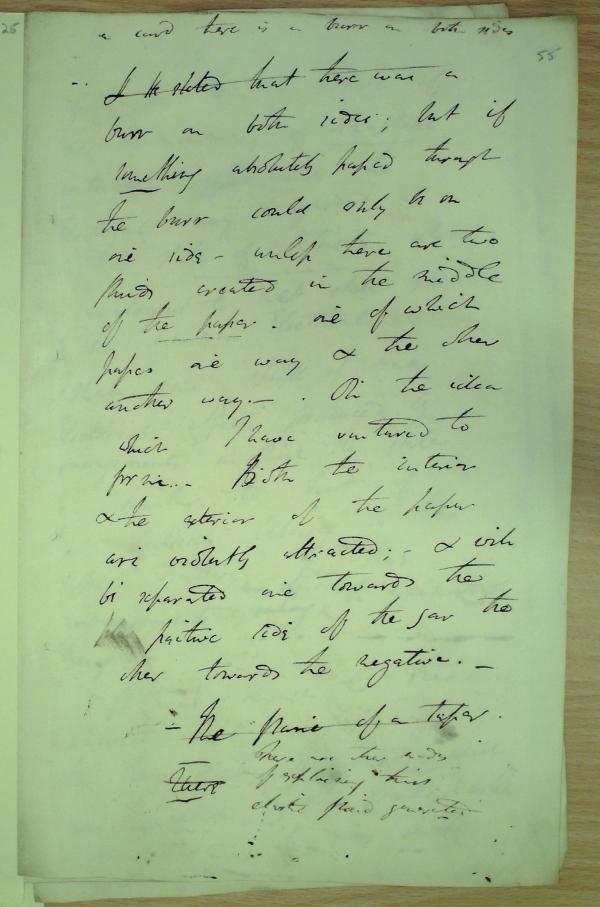 25
a card there is a burr on both sides
55
-. I He stated that there was a
burr on both sides; but if
something absolutely passed through
the burr could only be on
one side - unless there are two
fluids created in the middle
of the paper. one of which
passes one way & the other
another way.- . On the idea
which I have ventured to
form... Both the interior
& the exterior of the paper
are violently attracted; - & will
be separated one towards the
positive side of the jar the
other towards the negative. -
- The flame of a taper.
there are other modes
There of explaining this
electric fluid generation